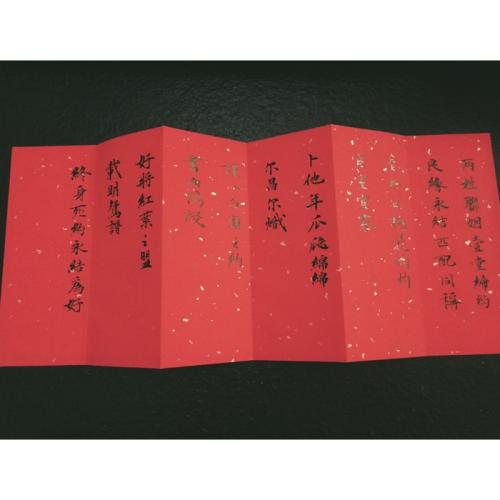 两姓聯姻壹堂締約
良緣永結匹配同稱
看此日桃花灼灼
宜室宜家
卜他年瓜瓞綿綿
尔昌尔熾
謹以白頭之約
書向鴻箋
好將紅葉之盟
載明鴛譜
終身死約永結為好